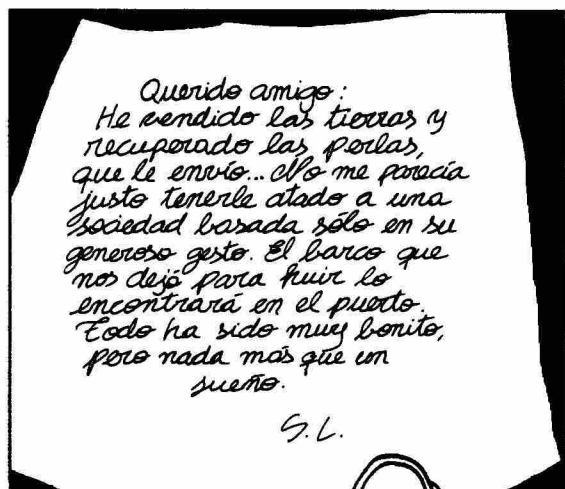 Querido amigo:
He vendido las tierras y
recuperado las perlas,
que le envío... No me parecía
justo tenerle atado a una
sociedad basada sólo en su
generoso gesto. El barco que
nos dejó para huir lo
encontrará en el puerto.
Todo ha sido muy bonito,
pero nada más que un
sueño.
S.L.